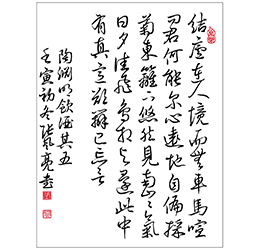 結廬在人境而無車馬喧
问君何能尔心遠地自偏採
菊東籬下悠然見南山山氣
日夕佳飛鳥相与還此中
有真意欲辯已忘言
陶渊明飲酒其五
壬寅初冬张风亮书